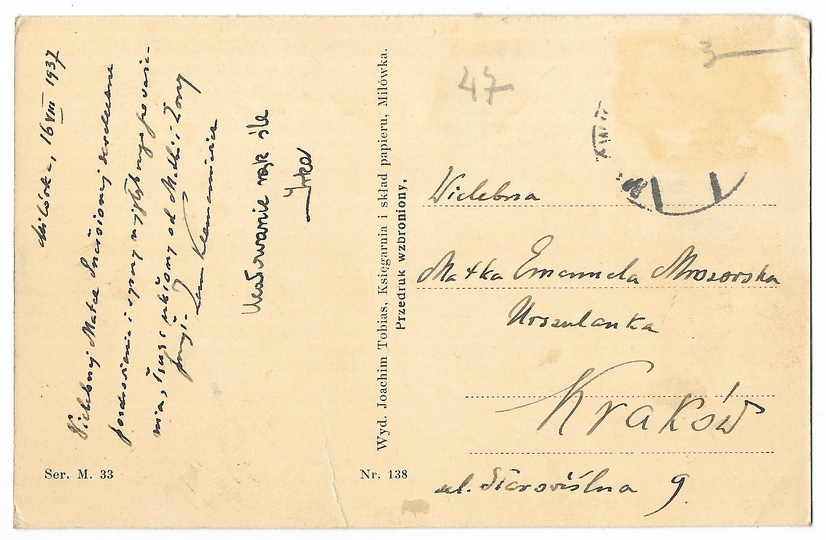 Milówka, 16 VIII 1937
Wielebnej Matce Przełożonej serdeczne
pozdrowienia i wyrazy najgłębszego poważa-
nia, łącząc ukłony od Matki i Żony
Ucałowanie rąk śle
Irka
Wyd. Joachim Tobias, Księgarnia i skład papieru, Milówka.
Przedruk wzbroniony.
Ser. M. 33
Nr. 138
47
3
Wielebna
Matka Emanuela Mrozowska
Urszulanka
Kraków
ul. Starowiślna 9.